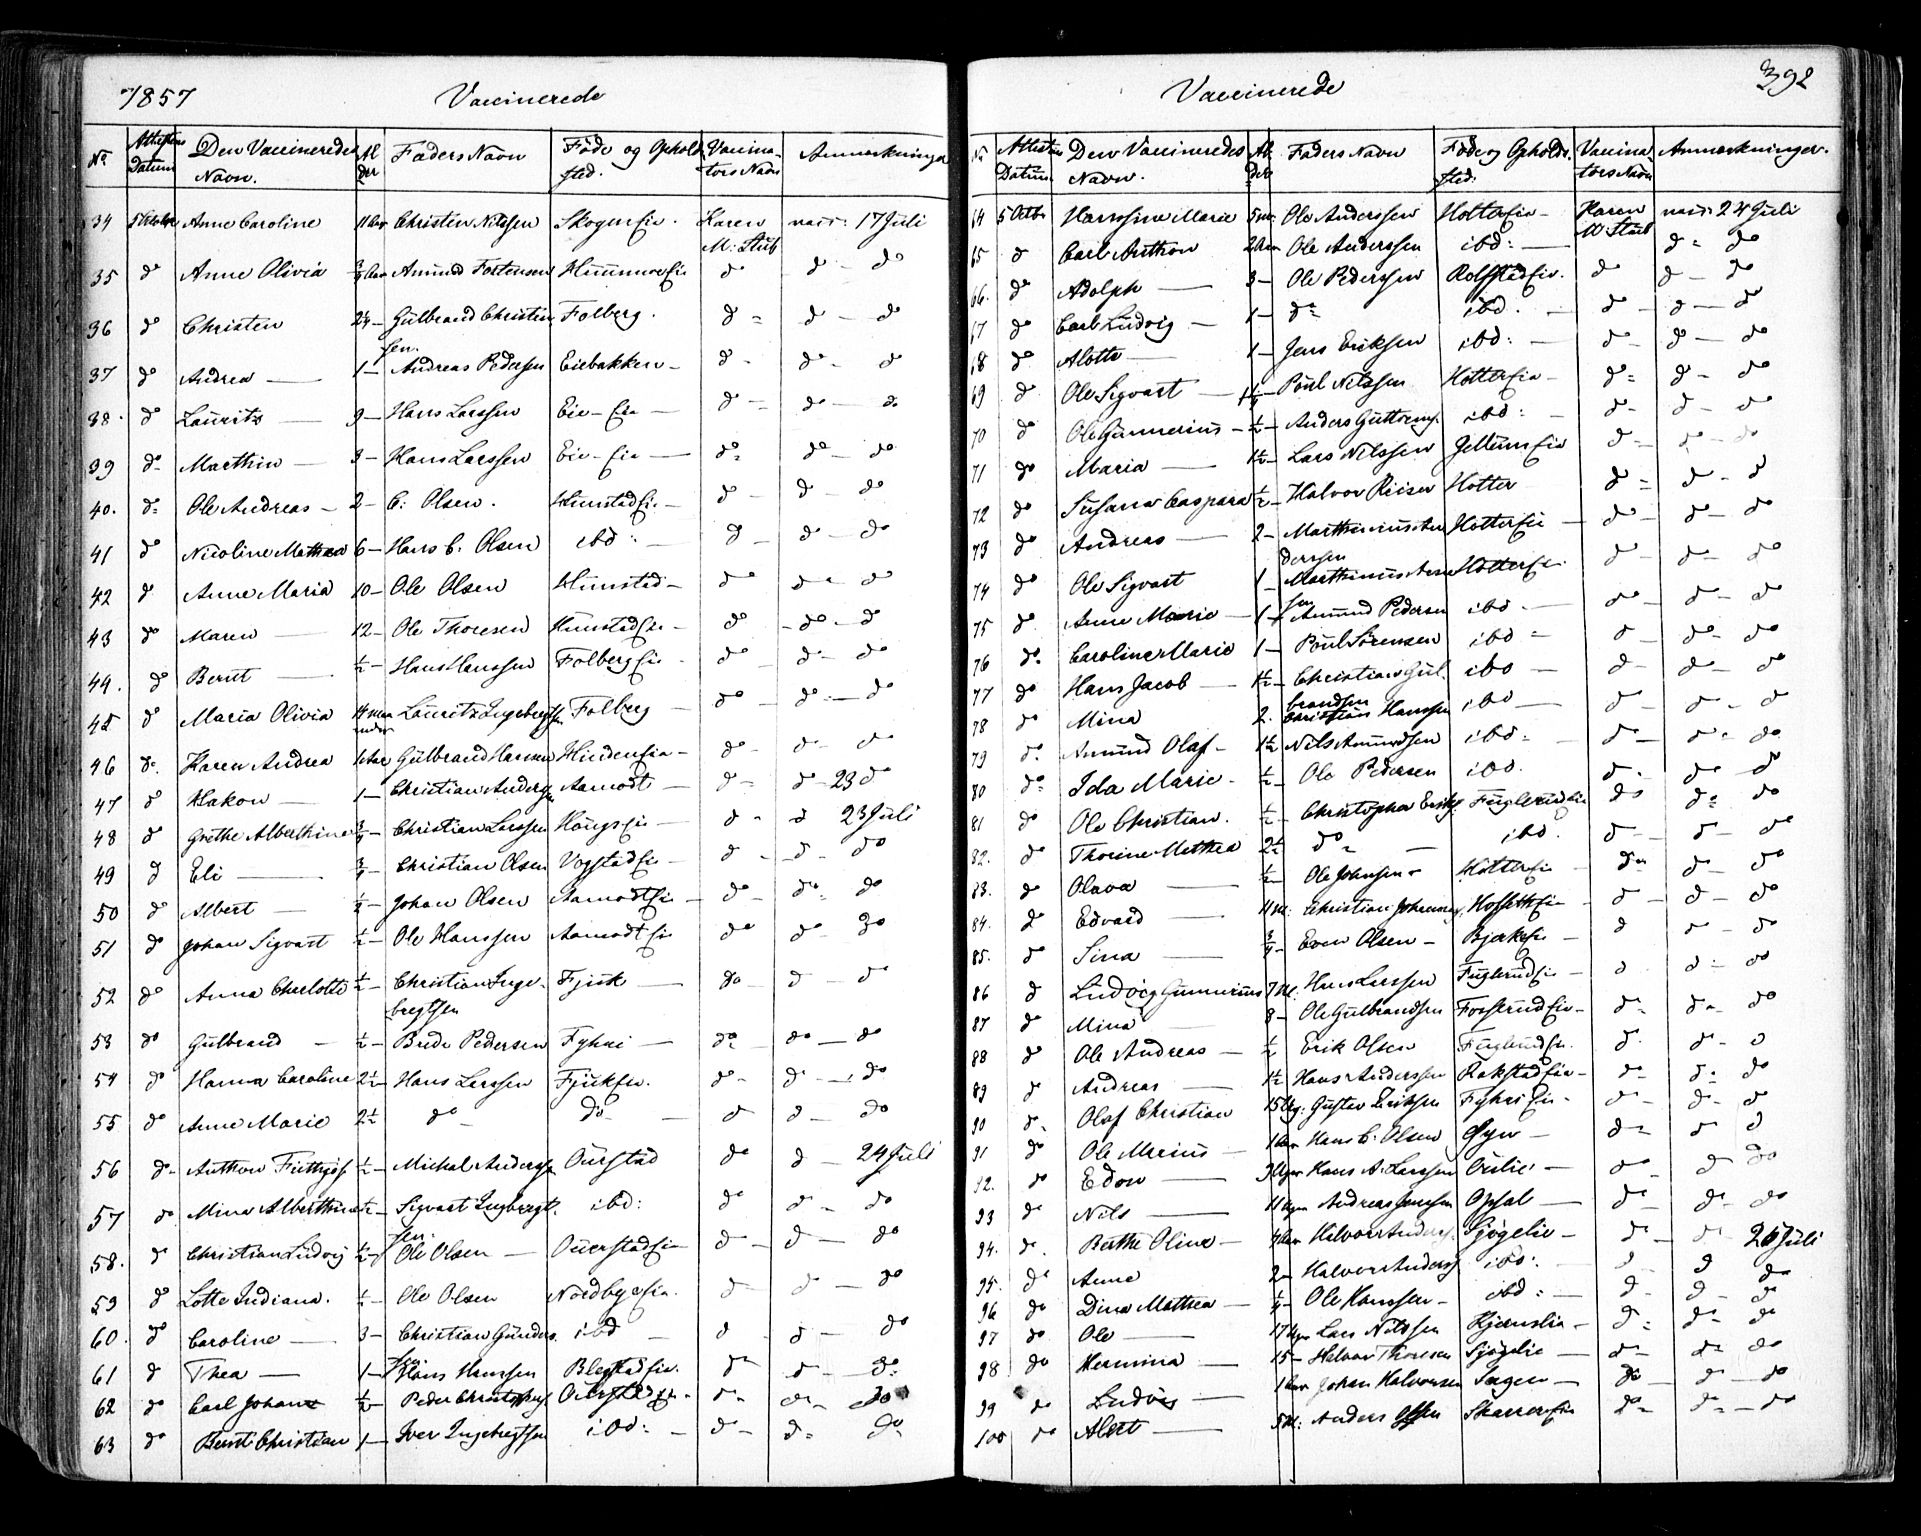 1857 Vaccinerede
No Attestens Datum Den Vaccineredes Navn. Alder Faders Navn Føde og Opholdssted. Vaccinators Navn Anmærkninger
34 5 Octobr Anne Caroline 11 Aar Christen Nilssen Skogneie. Karen M: Stub vacc: 17 Juli
35 do Anne Olivia 3/4 Aar Amund Tostensen do do - do
36 do Christen 2 1/2 - Gulbrand Christensen Folberg. do do - do
37 do Andrea 1 - Andreas Pedersen Eiebakken - do do - do
38. do Lauritz 9 - Hans Larssen Eie - eie do do - do
39 do Marthin 3 - Hans Larssen Eie - eie do do - do
40. do Ole Andreas - 2 - C: Olsen. Himstadeie - do do - do
41 do Nicoline Mathea 6 - Hans C: Olsen ibd: do do - do
42 do Anne Maria 10 - Ole Olsen Himstad - do do - do
43 do Maren 12 - Ole Thoresen Himstadeie - do do - do
44. do Bernt 1/2 - Hans Hanssen Folbergeie do do - do
45 do Maria Olivia Lauritz Ingebregtsen Folberg do do - do
46 do. Karen Andrea 1 Aar Gulbrand Hansen Hindeneie - do do - do
47 do Hakon 1 - Christian Anderssen Aamodt do do 23 do
48 do Grethe Alberthine 3/4 - Christian Larssen Haugseie - do do 23 Juli
49 do Eli 3/4 - Christian Olsen Vogstadeie - do do - do
50 do Albert 1/2 - Johan Olsen Aamodteie - do do - do
51 do Johan Sigvart 1/2 - Ole Hanssen Aamodteie do do - do
52 do Anna Charlotte 1/2 - Christian Ingebregtsen Fjuk do do - do
53 do Gulbrand 1/2 - Brede Pedersen Fyhri do do - do
54 do Hanna Caroline 2 1/2 - Hans Larssen Fjukeie. do do - do
55 do Anne Marie 2 1/2 do do do do - do
56 do Anthon Frithjof 1/2 - Michal Anderssen Ourstad do do - 24 Juli
57 do Mina Alberthine 1/2 - Sigvart Ingbregtsen. ibd: do do - do
58. do Christian Ludvig 1/2 - Ole Olsen Ouerstadeie do do - do
59 do Lotte Indiana. 1/2 - Ole Olsen Nordbyeeie. do do - do
60. do Caroline 3 - Christian Gundersen ibd do do - do
61 do Thea 1 - Hans Hanssen Blegstadeie. do do - do
62 do Carl Johan 1/2 - Peder Ouerstadeie. do do - do
63 do Bernt Christian 1 - Iver Ingebregtsen ibd: do do - do
Vaccinerede 392
No Attestens Datum Den Vaccineredes Navn. Alder Faders Navn Føde og Opholdssted. Vaccinators Navn Anmærkninger.
64 5 Octbr Hanssine Marie Ole Anderssen Hottereie - Karen M: Stub vacc: 24 Juli
65 do Carl Anthon 2 Aar Ole Anderssen ibd: do - do
66. do Adolph 3 - Ole Pederssen Rolfstadeie. do do - do
67 do Carl Ludvig 1 - do ibd. do do - do
68 do Alette 1 - Jens Eriksen ibd: do do - do
69 do Ole Sigvart Poul Nilssen Hottereie - do do - do
70 do Ole Gunnerius - 1/2 - Anders Guttorms. ibd: do do - do
71 do Maria 1 1/2 - Lars Nilssen Jellumeie do do - do
72 do Susanna Caspara 1/2 - Halvor Riiser Hotter do do - do
73 do Andreas 2 - Marthinius Anderssen Hottereie do do - do
74 do Ole Sigvart 1 - Marthinius Hottereie do do - do
75 do Anne Marie 1 - Amund Pedersen ibd do do - do
76 do. Caroline Marie 1 - Poul Sørensen ibd do do - do
77 do Hans Jacob 1 1/2 - Christian Gulbrandsen ibd do do - do
78 do Mina 2. Christian Hanssen ibd do do - do
79 do. Amund Olaf - 1 1/2 Nils Amundsen ibd: do do - do
80 do Ida Marie - 1/2 - Ole Pedersen ibd. do do - do
81 do Ole Christian. 1/2 - Christopher Eriks. Fuglerudeie do do - do
82. do Thorine Mathea 2 1/2 do ibd. do do - do
83. do Olava 1/2 - Ole Johnsen - Hottereie do do - do
84. do Edvard 11 M: Christian Johannes. Hofseteie do do - do
85. do Sina 3/4 - Even Olsen - Bjerkeeie do do - do
86 do Ludvig Gunnerius 7 M: Hans Larssen Fuglerudeie - do do - do
87 do Mina 8 - Ole Gulbrandsen Forstrudeie - do do - do
88 do Ole Andreas 1/2 Erik Olsen Fuglerudeie. do do - do
89 do Andreas 1 1/2 Hans Anderssen Rakstadeie - do do - do
90 do. Olaf Christian 15 Ug: Gustav Eriksen Fyhrieie - do do - do
91 do Ole Marius 1 Aar Hans C: Olsen Gyen - do do do
92. do Edon Hans A. Larssen Oulie - do do do
93 do Nils 11 Uger Andreas Jenssen Opsal do do - do
94. do. Berthe Oline - 4 Aar Halvor Anderss. Sjøgelie - do do 26 Juli
95. do Anne 2 - Halvor Anderss ibd: do do do
96 do Dina Mathea 1/4 - Ole Hanssen - ibd: do do - do
97 do Ole 17 Uger Lars Nilssen Kjernslia - do do - do
98 do Hermina 15 - Halvor Thoresen Sjøgelie do do do
99 do Ludvig 1 Aar Johan Halvorsen Sagen - do do - do
100 do Albert 5 M: Anders Skarrereie do do - do